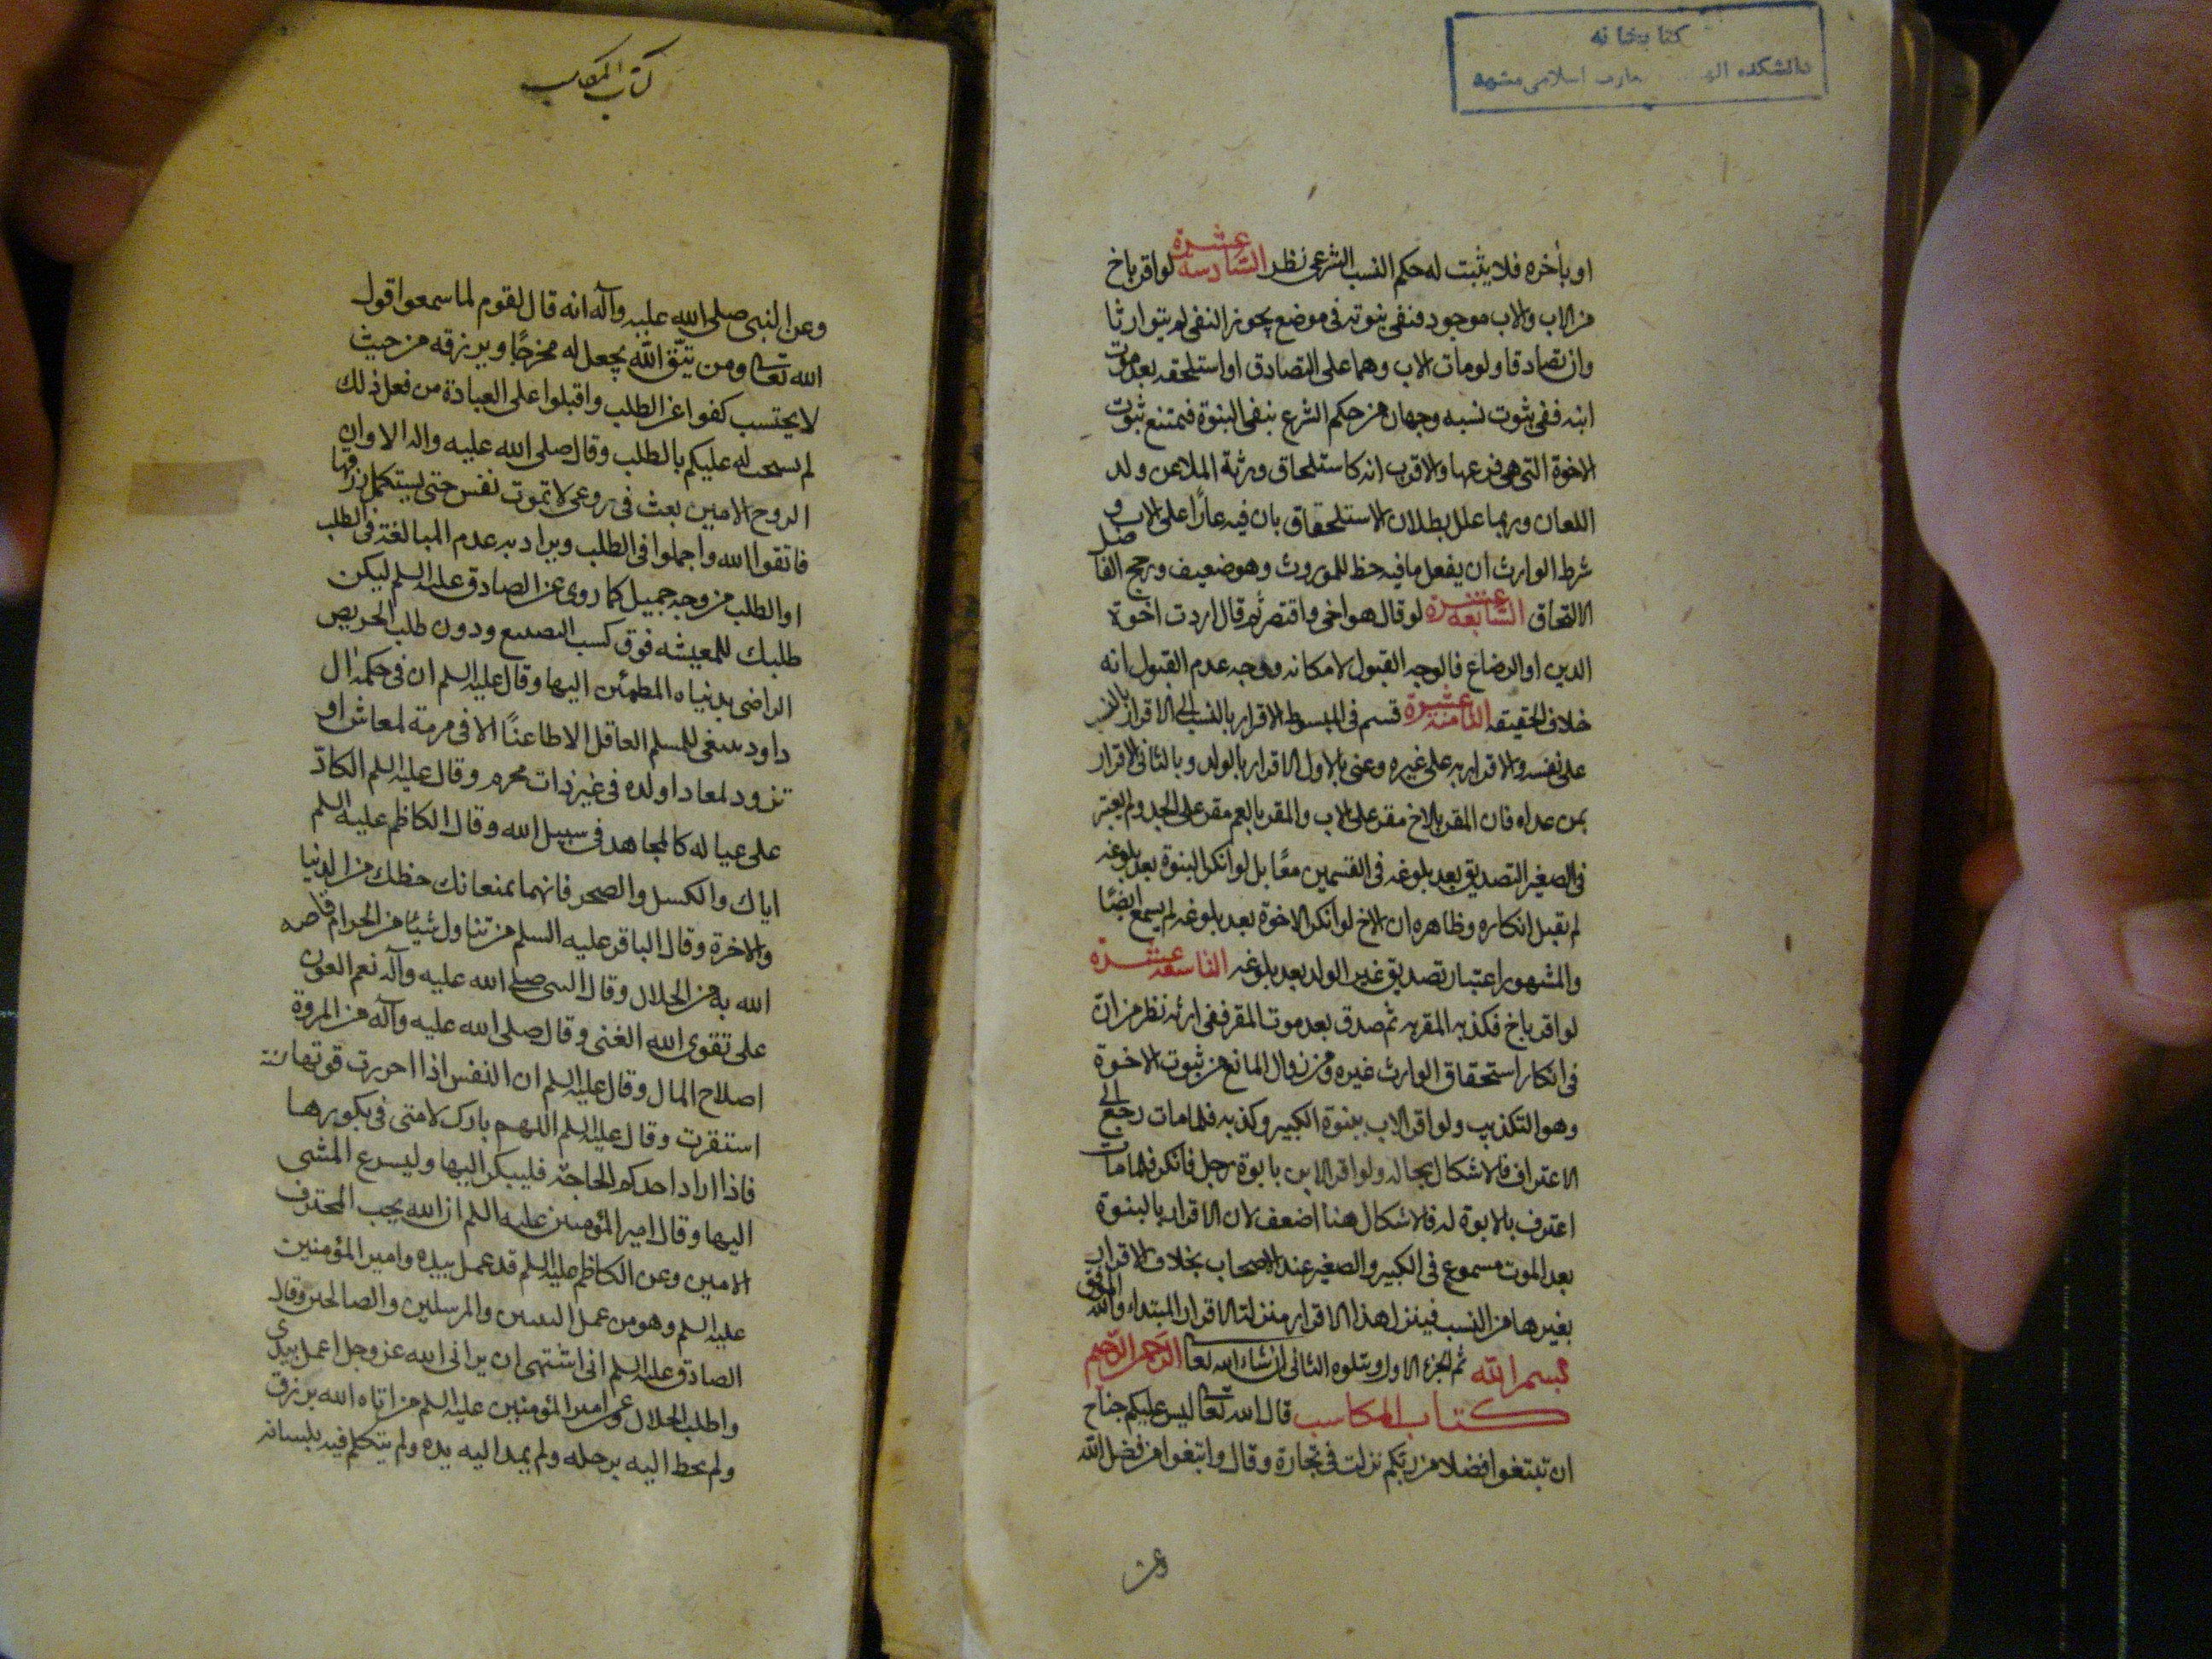 كتابخانه
دانشكده الهـ معارف اسلامى مشهد
او بأخره فلا يثبت له حكم النسب الشرعى نظر السادسة عشرة لو اقر باخ
من الاب والاب موجود فنفى بنوته فى موضع يجوز النفى لم يتوارثا
وان تصادقا ولو مات الاب وهما على التصادق او استلحقه بعد موت
ابنه ففى ثبوت نسبه وجهان من حكم الشرع بنفى البنوة فيمتنع ثبوت
الاخوة التى هى فرعها والاقرب انه كاستلحاق ورثة الملاعن ولد
اللعان وربما علل بطلان الاستلحقاق بان فيه عارًا على الاب و
شرط الوارث ان يفعل ما فيه حظ للموروث وهو ضعيف ورجح الفاضل
الالتحاق السابعة عشرة لو قال هو اخى واقتصر ثم قال اردت اخوة
الدين او الرضاع فالوجه القبول لامكانه ووجه عدم القبول انه
خلاف الحقيقة الثامنة عشرة قسم فى المبسوط الاقرار بالنسب الى الاقرار بالنسب
على نفسه والاقرار به على غيره وعنى بالاول الاقرار بالولد وبالثانى الاقرار
بمن عداه فان المقر بالاخ مقر على الاب والمقر بالعم مقر على الجد ولم يعتبر
فى الصغير التصديق بعد بلوغه فى القسمين معًا بل لو انكر البنوة بعد بلوغه
لم تقبل انكاره وظاهره ان الاخ لو انكر الاخوة بعد بلوغه لم يسمع ايضًا
والمشهور اعتبار تصديق غير الولد بعد بلوغه التاسعة عشرة
لو اقر باخ فكذبه المقر به ثم صدق بعد موت المقر ففى ارثه نظر من ان
فى انكار استحقاق الوارث غيره ومن زوال المانع من ثبوت الاخوة
وهو التكذيب ولو اقر الاب ببنوة الكبير وكذبه فلما مات رجع الى
الاعتراف فالاشكال بحاله ولو اقر الابن بابوة رجل فانكر فلما مات
اعترف بالابوة له فالاشكال هنا اضعف لان الاقرار بالبنوة
بعد الموت مسموع فى الكبير والصغير عند الاصحاب بخلاف الاقرار
بغيرها من النسب فينزل هذا الاقرار منزلة الاقرار المبتداء والله الموفق
بسم الله تم الجزء الاول ويتلوه الثانى ان شاء الله تعا الرحمن الرحيم
كتاب المكاسب قال الله تعا ليس عليكم جناح
ان تبتغوا فضلا من ربكم نزلت فى تجارة وقال وابتغوا من فضل الله
وعن
كتاب المكاسب
وعن النبى صلى الله عليه وآله انه قال لقوم لما سمعوا قول
الله تعا ومن يتق الله يجعل له مخرجًا ويرزقه من حيث
لا يحتسب كفوا عن الطلب واقبلوا على العبادة من فعل ذلك
لم يستجب له عليكم بالطلب وقال صلى الله عليه واله الا وان
الروح الامين بعث فى روعى لا تموت نفس حتى يستكمل رزقها
فاتقوا الله واجملوا فى الطلب ويراد به عدم المبالغة فى الطلب
او الطلب من وجه جميل كما روى عن الصادق عليه السلم ليكن
طلبك للمعيشه فوق كسب المضيع ودون طلب الحريص
الراضى بدنياه المطمئن اليها وقال عليه السلم ان فى حكمة ال
داود ينبغى للمسلم العاقل الا طاعنًا الا فى مرمة لمعاش او
تزود لمعاد او لذه فى غير ذات محرم وقال عليه السلم الكادّ
على عياله كالمجاهد فى سبيل الله وقال الكاظم عليه السلم
اياك والكسل والضجر فانهما يمنعانك حظك من الدنيا
والاخرة وقال الباقر عليه السلم من تناول شيئا من الحرام قاصه
الله به من الحلال وقال النبى صلى الله عليه وآله نعم العون
على تقوى الله الغنى وقال صلى الله عليه وآله من المروة
اصلاح المال وقال عليه السلم ان النفس اذا احرزت قوتها
استقرت وقال عليه السلم اللهم بارك لامتى فى بكورها
فاذا اراد احدكم الحاجة فليبكر اليها وليسرع المشى
اليها وقال امير المؤمنين عليه السلم ان الله يحب المحترف
الامين وعن الكاظم عليه السلم قد عمل بيده وامير المؤمنين
عليه السلم وهو من عمل النبيين والمرسلين والصالحين وقال
الصادق عليه السلم انى اشتهى ان يرانى الله عز وجل اعمل بيدى
واطلب الحلال وعن امير المؤمنين عليه السلم من اتاه الله برزق
ولم يخط اليه برجله ولم يمد اليه يده ولم يتكلم فيه بلسانه